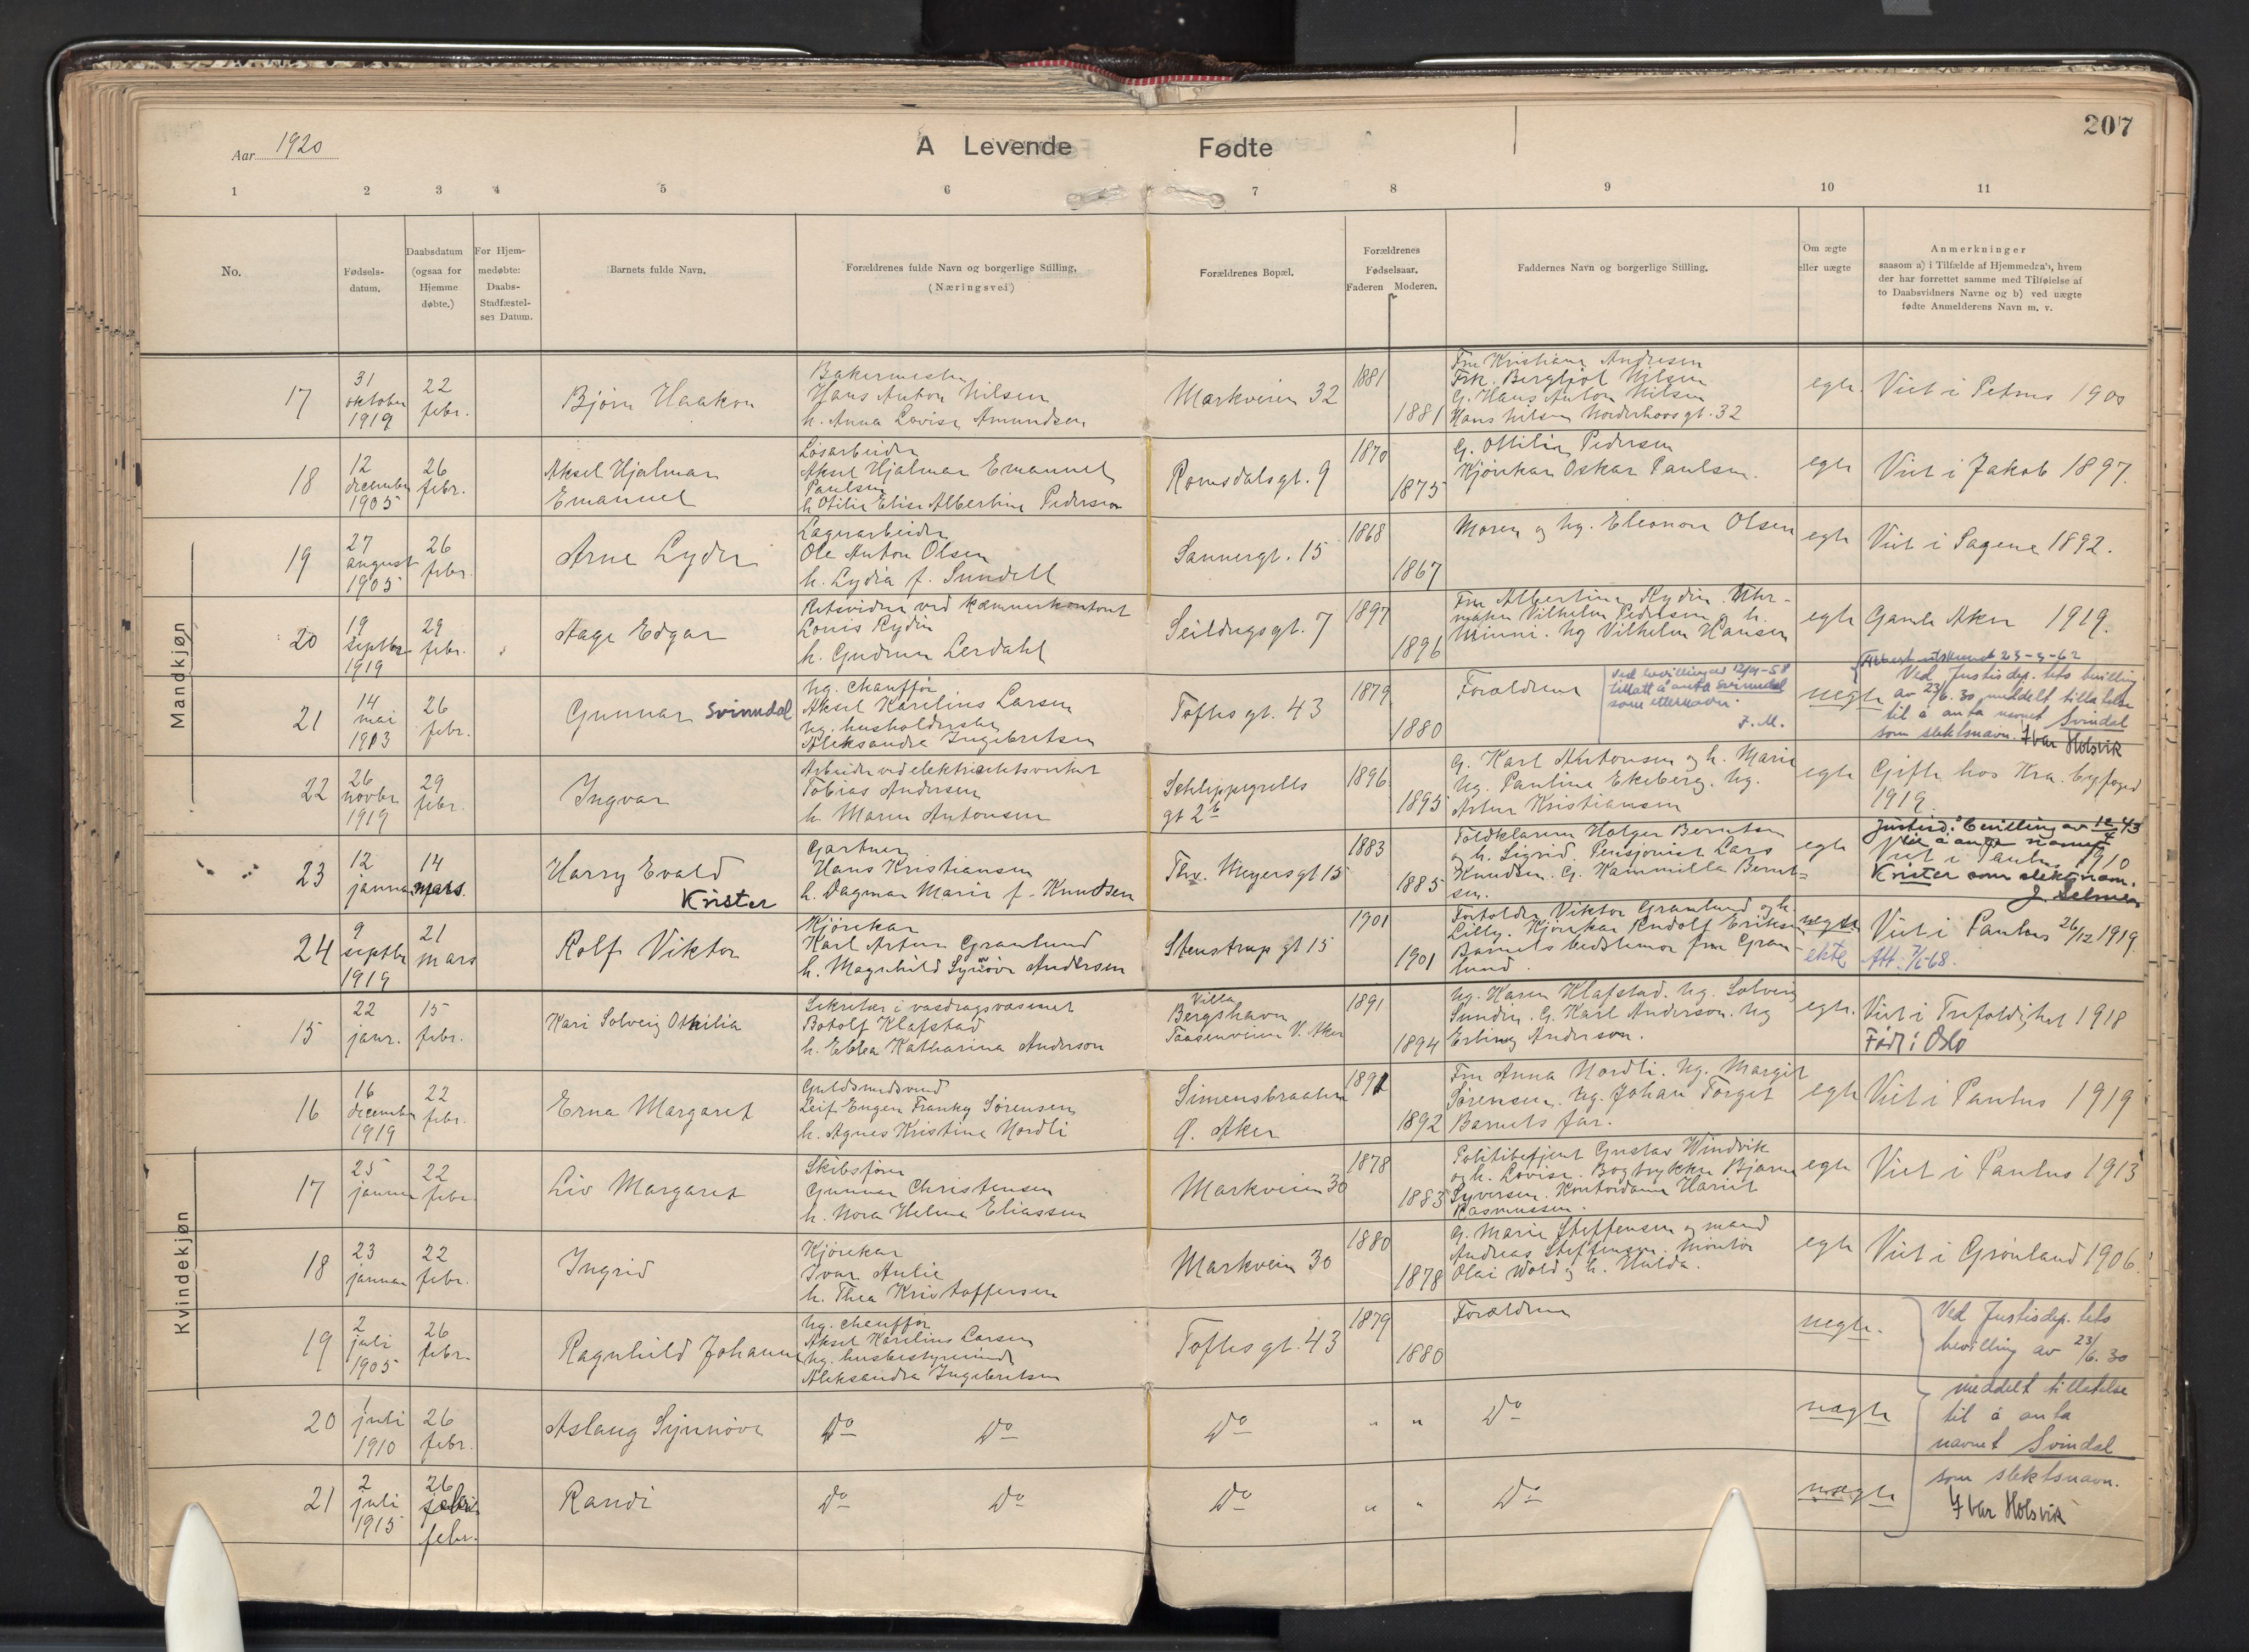 207
Aar 1920
A Levende Fødte
1 2 3 4 5 6 7 8 9 10 11
No.
Fødsels-
datum.
Daabsdatum
(ogsaa for
Hjemme
døbte.)
For Hjem-
medøbte:
Daabs-
Stadfæstel-
ses Datum.
Barnets fulde Navn.
Forældrenes fulde Navn og borgerlige Stilling,
(Næringsvei)
Forældrenes Bopæl.
Forældrenes
Fødselsaar.
Faderen Moderen.
Faddernes Navn og borgerlige Stilling.
Om ægte
eller uægte
Anmerkninger
saasom a) i Tilfælde af Hjemmedaab, hvem
der har forrettet samme med Tilføielse af
to Daabsvidners Navne og b) ved uægte
fødte Anmelderens Navn m. v.
Mandkjøn
17
31
oktober
1919
22
febr.
Bjørn Haakon
Bakermester
Hans Anton Nilsen
h. Anna Lovise Amundsen
Markveien 32
1881
1881
Fru Kristiane Andresen
Frk. Bergljot Nilsen
G. Hans Anton Nilsen
Hans Nilsen Norderhovsgt. 32
egte
Viet i Petrus 1900
18
12
december
1905
26
febr.
Aksel Hjalmar
Emanuel
Løsarbeider
Aksel Hjalmar Emanuel
Paulsen
h. Otilie Elise Albertine Pedersen
Romsdalsgt. 9
1870
1875
G. Ottilie Pedersen
Kjørekar Oskar Paulsen.
egte
Viet i Jakob 1897.
19
27
august
1905
26
febr.
Arne Lyder
Lagerarbeider
Ole Anton Olsen
h. Lydia f. Sundell
Sannergt. 15
1868
1867
Moren og Ug. Eleonore Olsen
egte
Viet i Sagene 1892.
20
19
septbr
1919
29
febr.
Aage Edgar
Retsvidne ved kæmnerkontoret
Louis Rydin
h. Gudrun Lerdahl
Seildugsgt. 7
1897
1896
Fru Albertine Rydin. Uhr-
maker Vilhelm Pedersen og h.
Minni. Ug Vilhelm Hansen
egte
Gamle Aker 1919.
21
14
mai
1913
26
febr.
Gunnar Svinndal
Ug. chauffør
Aksel Karelius Larsen
Ug. husholderske
Aleksandra Ingebretsen
Toftes gt. 43
1879
1880
Forældrene
Ved bevilling av 12/4-58
tillatt å anta Svinndal
som etternavn.
J. M.
uegte
Attest utskrevet 23-3-62
Ved Justisdep. tets bevilling
av 23/6. 30 meddelt tillatelse
til å anta navnet Svindal
som slektsnavn. Ivar Holsvik
22
26
novbr
1919
29
febr.
Ingvar
Arbeider ved elektricitetsverket
Tobias Andersen
h. Maren Antonsen
Schleppegrells
gt 2b
1896
1895
G. Karl Antonsen og h. Marie
Ug. Pauline Ekeberg. Ug.
Artur Kristiansen
egte
Gifte hos Kra. byfoged
1919.
23
12
januar
14
mars.
Harry Evald
Krister
Gartner
Hans Kristiansen
h. Dagmar Marie f. Knudsen
Thv. Meyersgt 15
1883
1885
Toldklarerer Holger Berntsen
og h. Sigrid. Pensjonist Lars
Knudsen. G. Kammilla Bernt-
sen.
egte
Justisd. bevilling av 12/4 43
til å anta navnet
Viet i Paulus 1910
Krister som slektsnavn.
J. Selmer
24
9
septbr
1919
21
mars
Rolf Viktor
Kjørekar
Karl Artur Granlund
h. Magnhild Synøve Andersen
Stenstrup gt 15
1901
1901
Forfolder Viktor Granlund og h.
Lilly. Kjørekar Rudolf Eriksen
Barnets bedstemor fru Gran-
lund.
uegte
ekte
Viet i Paulus 26/12 1919.
Att. 7/5-68.
Kvindekjøn
15
22
janr.
15
febr.
Kari Solveig Othilia
Sekretær i vasdragsvæsenet
Botolf Klafstad
h. Ebbea Katharina Anderson
Villa
Bergshavn
Taasenveien V. Aker
1891
1894
Ug. Karen Klafstad. Ug. Solveig
Sundin. G. Karl Anderson. Ug
Erling Anderson.
egte.
Viet i Trefoldighet 1918
Født i Oslo
16
16
december
1919
22
febr.
Erna Margaret
Guldsmedsvend
Leif Eugen Franky Sørensen
h. Agnes Kristine Nordli
Simensbraaten
Ø. Aker
1891
1892
Fru Anna Nordli. Ug. Margit
Sørensen. Ug. Johan Torget
Barnets far.
egte
Viet i Paulus 1919
17
25
januar
22
febr.
Liv Margaret
Skibsfører
Gunnar Christensen
h. Nora Helene Eliassen
Markveien 30
1878
1883
Politibetjent Gustav Windvik
og h. Lovise. Bogtrykker Bjarne
Syversen. Kontordame Hariet
Rasmussen.
egte
Viet i Paulus 1913
18
23
januar
22
febr.
Ingrid
Kjørekar
Ivar Aulie
h. Thea Kristoffersen
Markveien 30
1880
1878
G. Marie Steffensen og mand
Andreas Steffensen. Montør
Olai Wold og h. Hulda.
egte
Viet i Grønland 1906.
19
2
juli
1905
26
febr.
Ragnhild Johanne
Ug. chauffør
Aksel Karelius Larsen
Ug. husbestyrerinde
Aleksandra Ingebretsen
Toftes gt. 43
1879
1880
Forældrene
uegte.
Ved Justisdep. tets
bevilling av 23/6. 30
meddelt tillatelse
til å anta
navnet Svindal
som slektsnavn.
Ivar Holsvik
20
1
juli
1910
26
febr.
Aslaug Synnøve
Do Do
Do
" "
Do
uegte
21
2
juli
1915
26
febr.
Randi
Do Do
Do
" "
Do
uegte